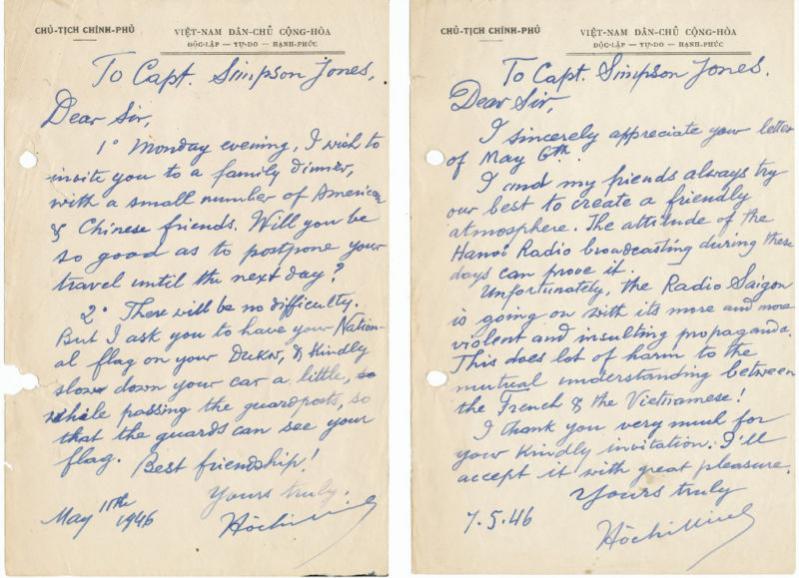 CHỦ-TỊCH CHÍNH-PHỦ
VIỆT-NAM DÂN-CHỦ CỘNG-HÒA
ĐỘC-LẬP — TỰ-DO — HẠNH-PHÚC
To Capt. Simpson Jones,
Dear Sir,
1° Monday evening, I wish to
invite you to a family dinner,
with a small number of American
& Chinese friends. Will you be
so good as to postpone your
travel until the next day?
2° There will be no difficulty.
But I ask you to have your Nation-
al flag on your & kindly
slow down your car a little,
while passing the guardposts, so
that the guards can see your
flag. Best friendship!
Yours truly,
May 11th
1946
Hôchiminh
CHỦ-TỊCH CHÍNH-PHỦ
VIỆT-NAM DÂN-CHỦ CỘNG-HÒA
ĐỘC-LẬP — TỰ-DO — HẠNH-PHÚC
To Capt. Simpson Jones.
Dear Sir,
I sincerely appreciate your letter
of May 6th.
I and my friends always try
our best to create a friendly
atmosphere. The attitude of the
Hanoi Radio broadcasting during these
days can prove it.
Unfortunately, the Radio Saigon
is going on with its more and more
violent and insulting propaganda.
This does lot of harm to the
mutual understanding between
the French & the Vietnamese!
I thank you very much for
your kindly invitation. I'll
accept it with great pleasure.
Yours truly
7.5.46
Hôchiminh